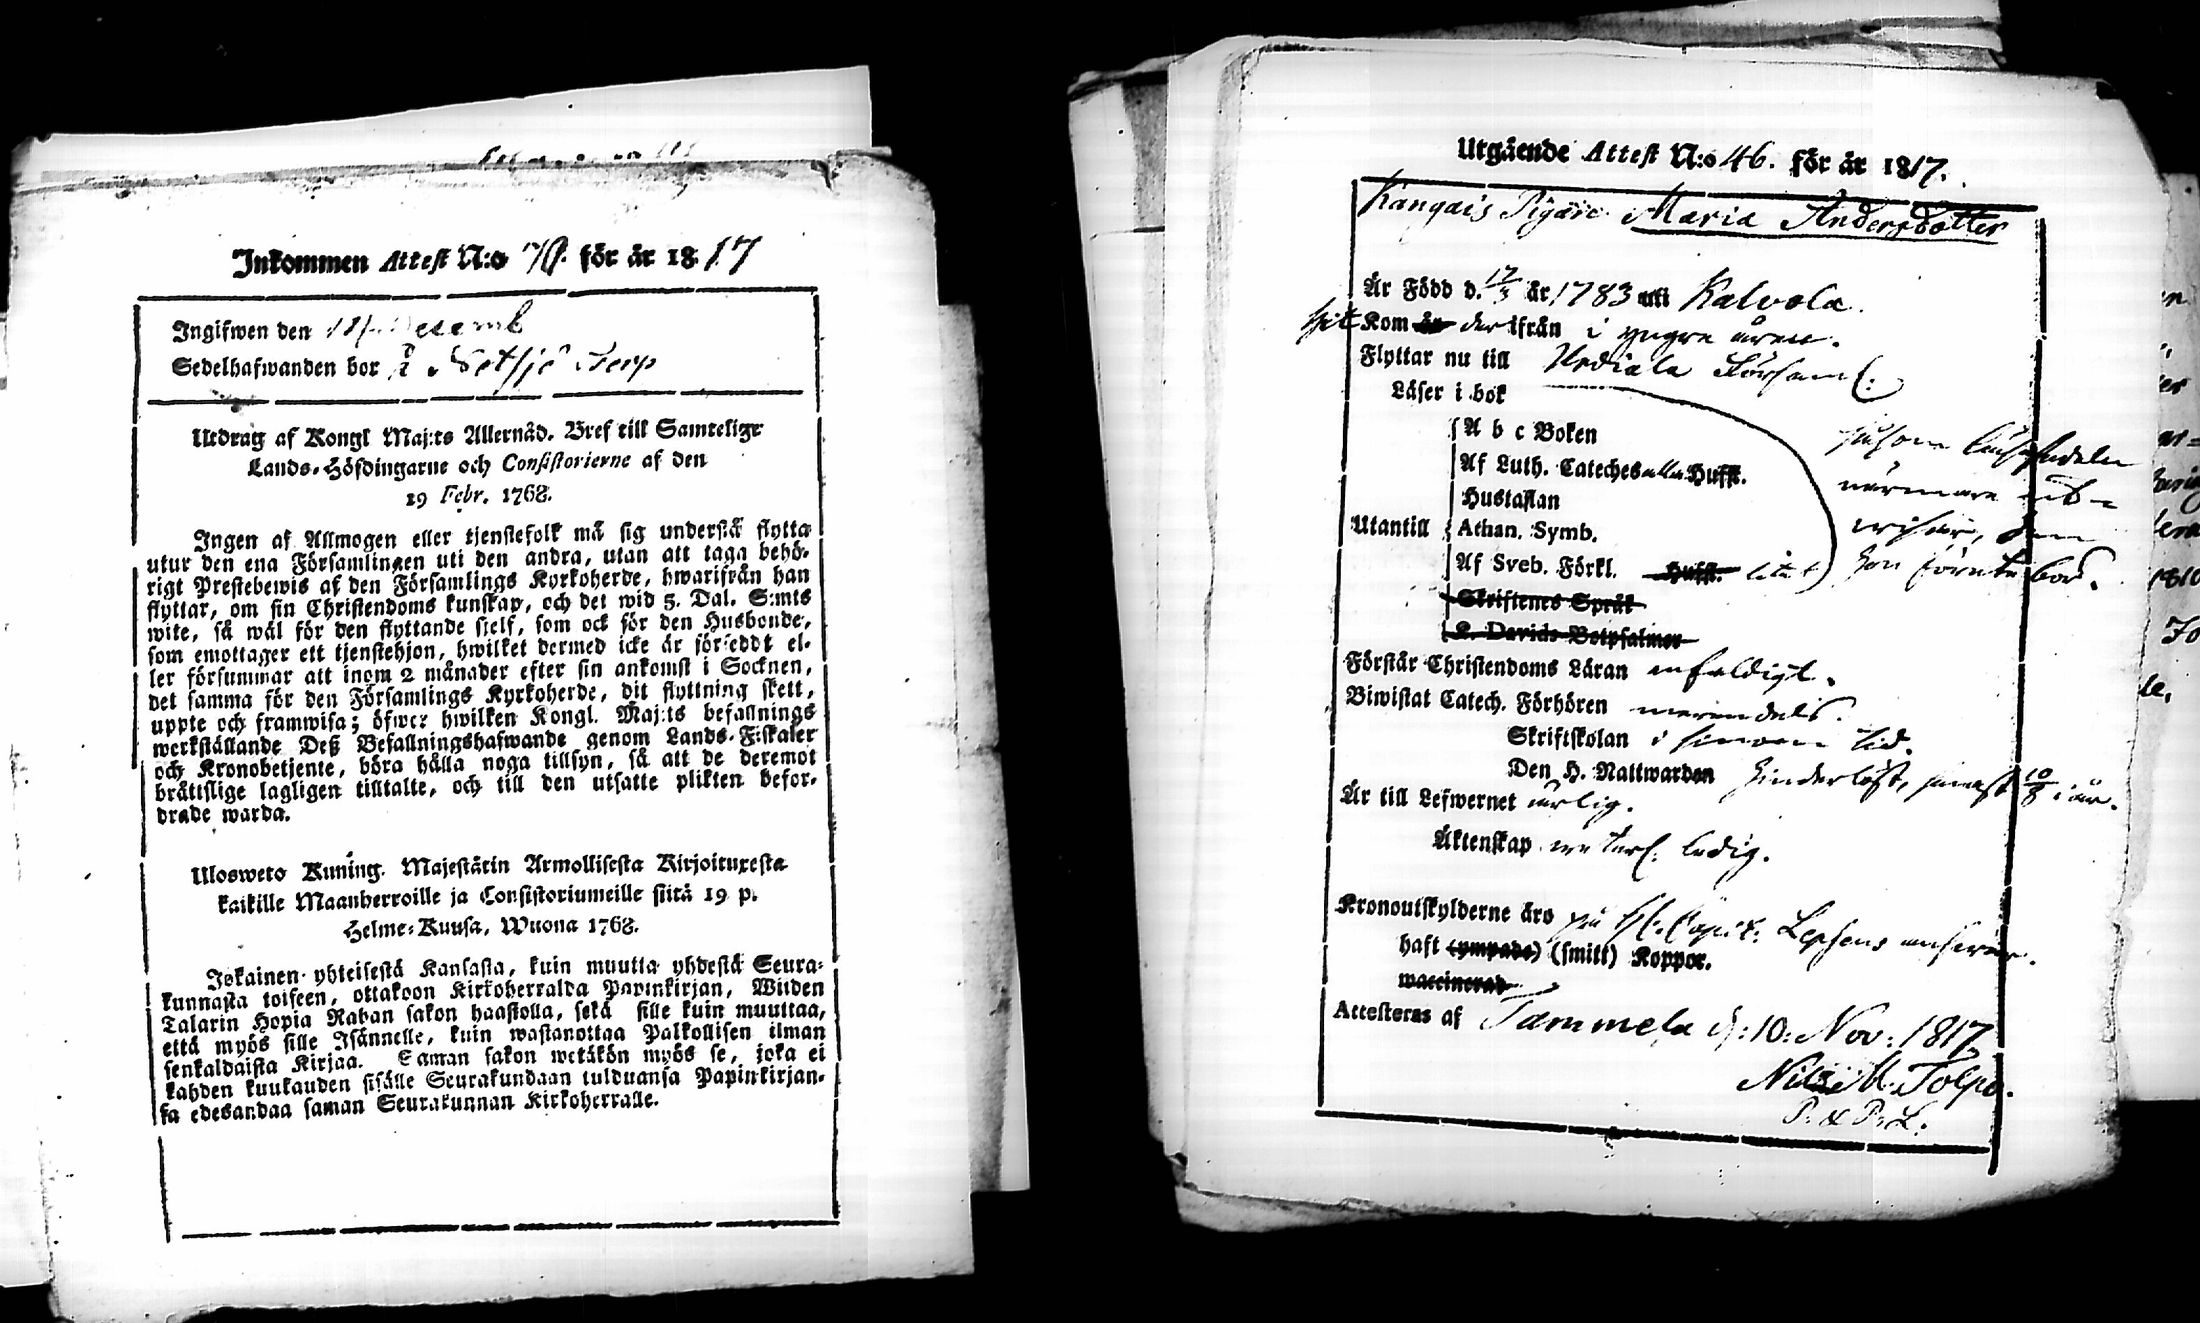 Inkommen Attest N:o för år 1817
Ingifwen den Decemb
Sedelhafwanden bor å Setsjö Terp
Utdrag af Kongl Maj:ts Allernåd. Bref till Samtelige
Lands-Höfdingarne och Consistorierne af den
19 Febr. 1768.
Ingen af Allmogen eller tjenstefolk må sig understå flytta
utur den ena Församlingen uti den andra, utan att taga behö-
rigt Prestebewis af den Församlings Kyrkoherde, hwarifrån han
flyttar, om sin Christendoms kunskap, och det wid 5. Dal. S:mts
wite, så wäl för den flyttande sielf, som ock för den Husbonde,
som emottager ett tjenstehjon, hwilket dermed icke är försedt el-
ler försummar att inom 2 månader efter sin ankomst i Socknen,
det samma för den Församlings Kyrkoherde, dit flyttning skett,
uppte och framwisa; öfwer hwilken Kongl. Maj:ts befallnings
werkställande Deß Befallningshafwande genom Lands-Fiskaler
och Kronobetjente, böra hålla noga tillsyn, så att de deremot
bråttslige lagligen tilltalte, och till den utsatte plikten befor-
drade warda.
Ulosweto Kuning. Majestätin Armollisesta Kirjoituxesta
kaikille Maanherroille ja Consistoriumeille siitä 19 p.
Helme-Kuusa, Wuona 1768.
Jokainen yhteisestä Kansasta, kuin muutta yhdestä Seura-
kunnasta toiseen, ottakoon Kirkoherralda Papinkirjan, Wiiden
Talarin Hopia Rahan sakon haastolla, sekä sille kuin muuttaa,
että myös sille Isännelle, kuin wastanottaa Palkollisen ilman
senkaldaista Kirjaa. Saman sakon wetäkön myös se, joka ei
kahden kuukauden sisälle Seurakundaan tulduansa Papinkirjan-
sa edesandaa saman Seurakunnan Kirkoherralle.
Utgående Attest N:o 46. för år 1817.
Kangais Pigan Maria Andersdotter
Är Född d. 17/3 år 1783 uti Kalvola.
hit Kom år der ifrån i yngre åren.
Flyttar nu till Urdiala Församl:
Läser i bok
A b c Boken
Af Luth. Cateches alla Hufst.
Hustaflan
Utantill Athan. Symb.
Af Sveb. Förkl. Hufst. litet
Skriftenes Språk
K. Davids Botpsalmer
såsom
närmare ut-
wisar, den
hon förete bör.
Förstår Christendoms Läran enfaldigt.
Biwistat Catech. Förhören merendels.
Skriftskolan i sinom tid.
Den H. Nattwarden hinderlöst, senast 10/8 i år.
Är till Lefwernet ärlig.
Äktenskap ledig.
Kronoutskylderne äro på Capit: answar.
haft (ympade) (smitt) Koppor.
waccinerad
Attesteras af Tammela d: 10: Nov: 1817
Nils M. Tolpo.
P. & P. L.